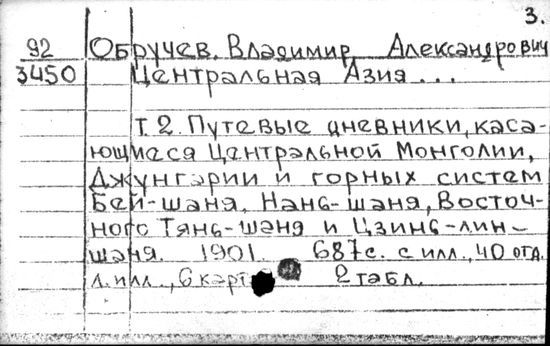 3.
92 Обручев, Владимир Александрович
3450 Центральная Азия ...
Т. 2. Путевые дневники, каса-
ющиеся Центральной Монголии,
Джунгарии и горных систем
Бей-шаня, Нань-шаня, Восточ-
ного Тянь-шаня и Цзинь-лин-
шаня. 1901. 687с. с илл., 40 отд.
л. илл., 6 карт 2 табл.